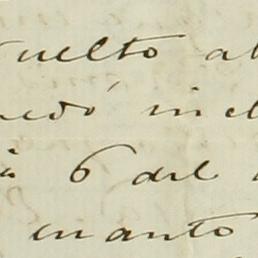 uelto al
uedó incl
a 6 del
cuanto